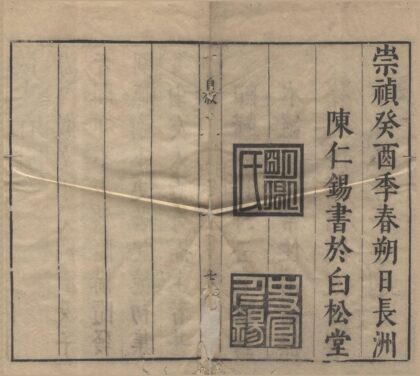 崇禎癸酉季春朔日長洲
陳仁錫書於白松堂
明卿氏
史官仁錫
自敘
七